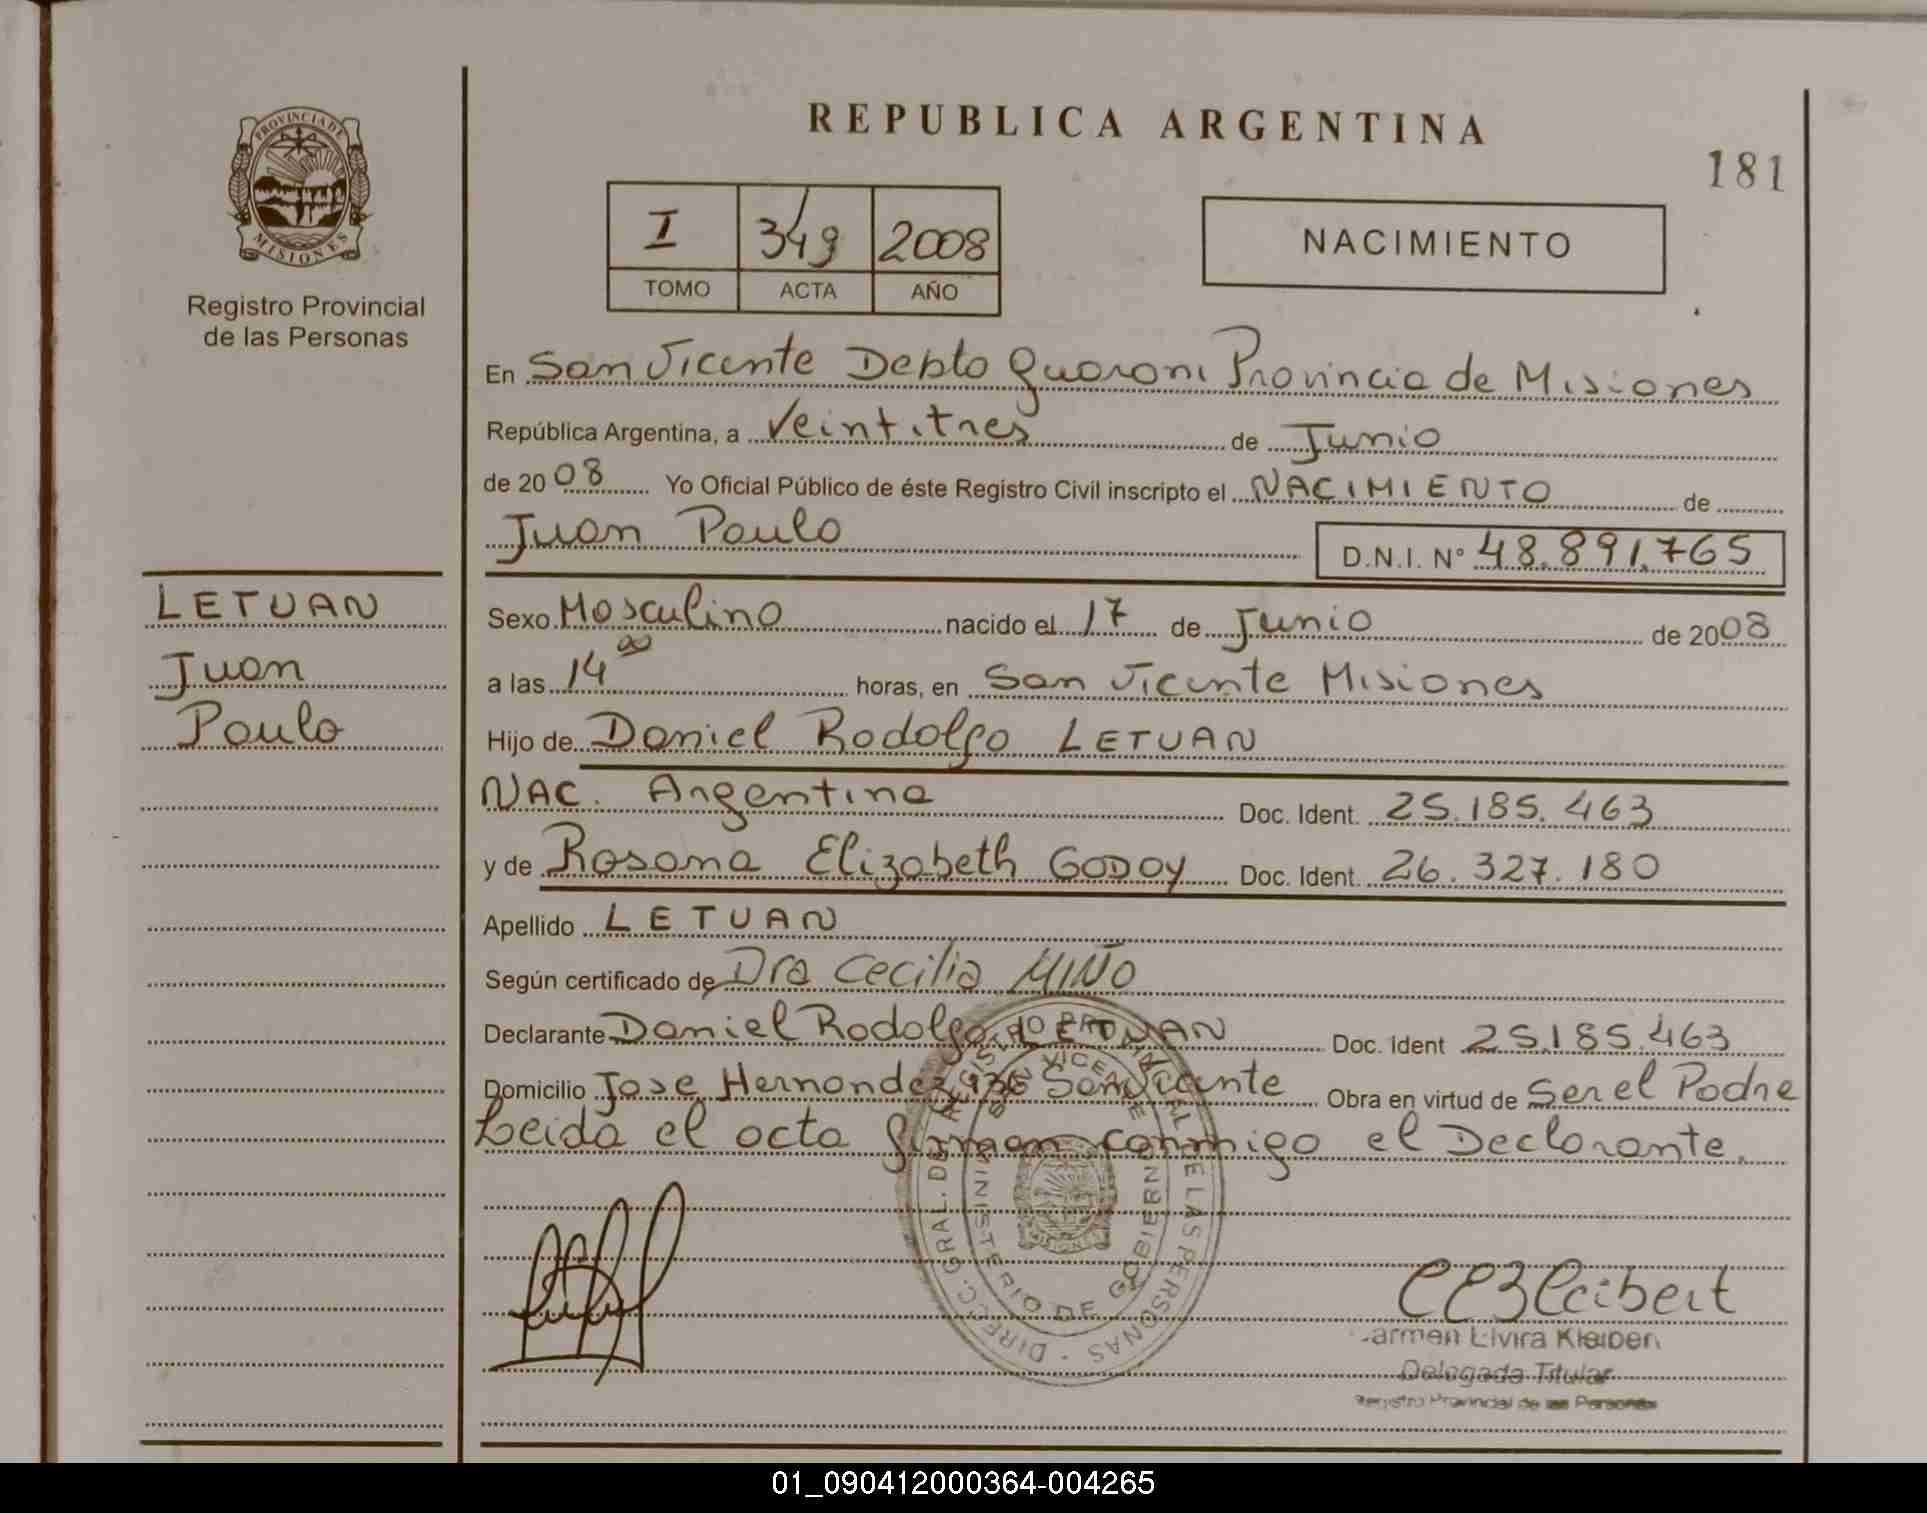 REPUBLICA ARGENTINA
181
PROVINCIA DE
MISIONES
Registro Provincial
de las Personas
I 349 2008
TOMO ACTA AÑO
NACIMIENTO
En San Vicente Depto Guarani Provincia de Misiones
República Argentina, a Veintitres de Junio
de 2008 Yo Oficial Público de éste Registro Civil inscripto el NACIMIENTO de
Juan Paulo D.N.I. Nº 48.891.765
LETUAN
Juan
Paulo
Sexo Masculino nacido el 17 de Junio de 2008
a las 14 00 horas, en San Vicente Misiones
Hijo de Daniel Rodolfo LETUAN
NAC. Argentina Doc. Ident. 25.185.463
y de Rosana Elizabeth GODOY Doc. Ident. 26.327.180
Apellido LETUAN
Según certificado de Dra Cecilia MIÑO
Declarante Daniel Rodolfo LETUAN Doc. Ident 25.185.463
Domicilio Jose Hernandez San Vicente Obra en virtud de Ser el Padre
Leida el acta firman conmigo el Declarante.
DIRECC. GRAL. DE REGISTRO PROVINCIAL DE LAS PERSONAS
SAN VICENTE
MINISTERIO DE GOBIERNO
Kleibert
Carmen Elvira Kleibert
Delegada Titular
Registro Provincial de las Personas
01_090412000364-004265